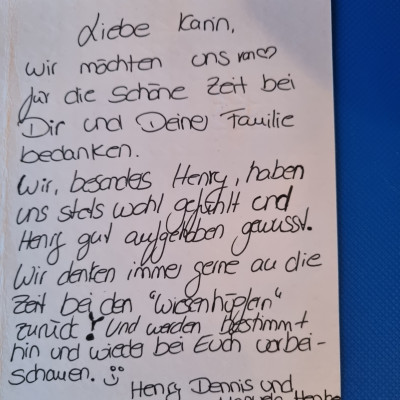 Liebe Karin,
wir möchten uns von ♡
für die schöne Zeit bei
Dir und Deiner Familie
bedanken.
Wir, besonders Henry, haben
uns stets wohl gefühlt und
Henry gut aufgehoben gewusst.
Wir denken immer gerne an die
Zeit bei den "Wiesenhüpfern"
zurück! Und werden bestimmt
hin und wieder bei Euch vorbei-
schauen. ☺
Henry, Dennis und